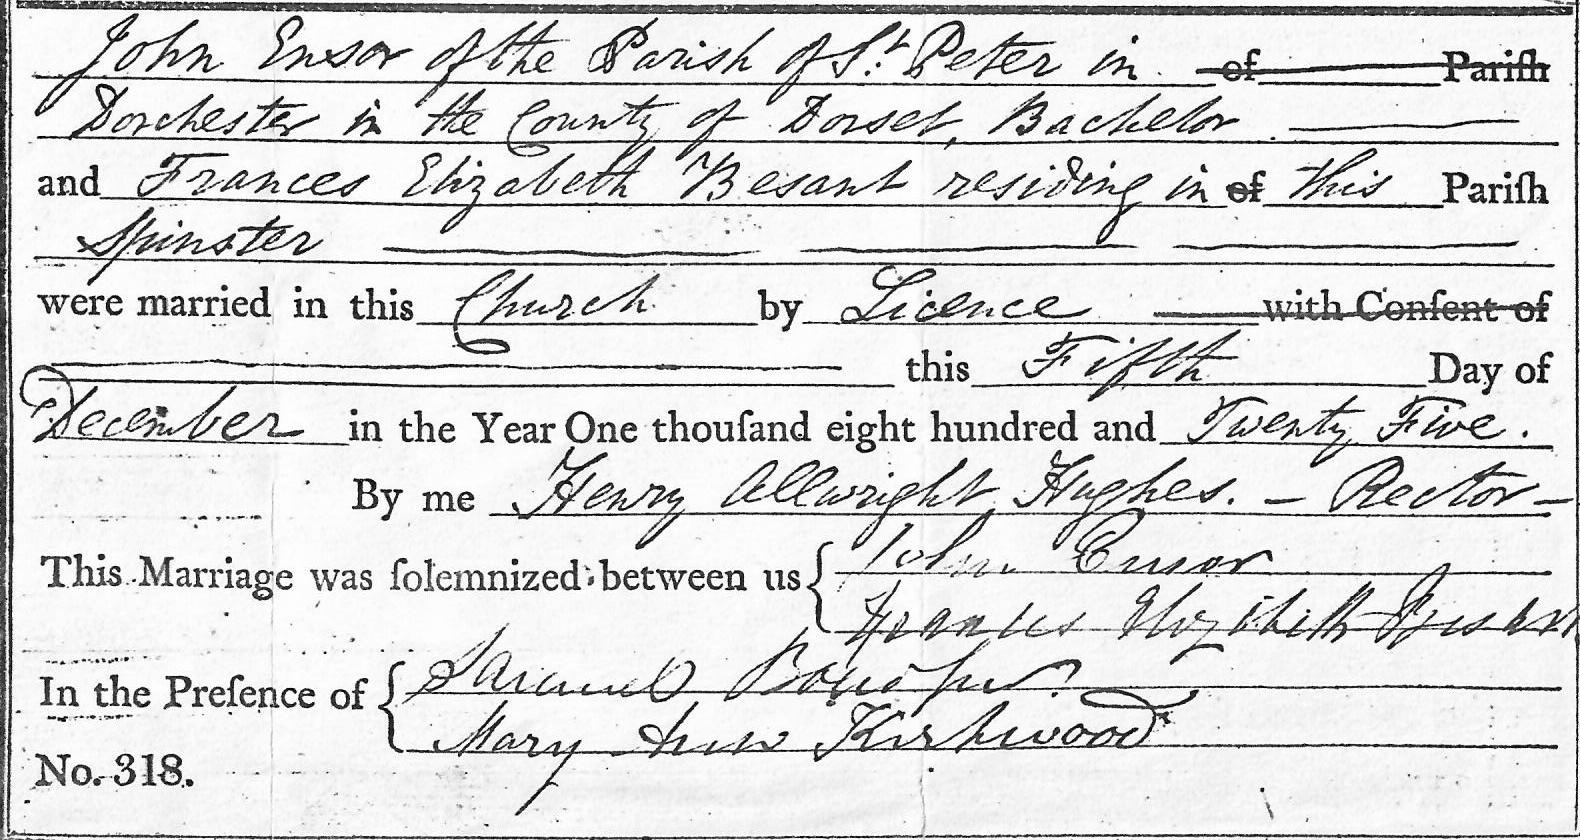 John Ensor of the Parish of St. Peter in of Pariſh
Dorchester in the County of Dorset, Bachelor
and Frances Elizabeth Besant residing in of this Pariſh
Spinster
were married in this Church by Licence with Conſent of
this Fifth Day of
December in the Year One thouſand eight hundred and Twenty Five.
By me Henry Allwright Hughes. - Rector -
This Marriage was ſolemnized between us { John Ensor
Frances Elizabeth Besant
In the Preſence of { Samuel
Mary Ann Kirkwood
No. 318.